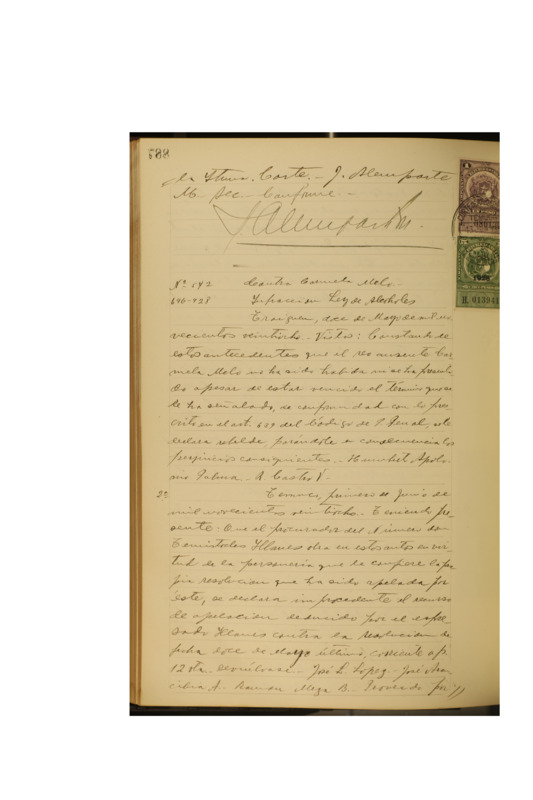 588
la Iltma. Corte. - J. Alemparte
M. Sec. Conforme. -
JAlemparte M.
Nº 542 Contra Carmela Melo
696-928 Infraccion Ley de Alcoholes
Traiguen, doce de Mayo de mil no-
vecientos veintiocho. - Vistos: Constando de
estos antecedentes que el reo ausente Car-
mela Melo no ha sido habida ni se ha presenta-
do apesar de estar vencido el término que se
le ha señalado, de conformidad con lo pres-
crito en el art. 629 del Código de P. Penal, se le
declara rebelde parándole en consecuencia los
perjuicios consiguientes. - Humbert. Apolo-
nio Palma. - R Castro V.
2ª Temuco, primero de Junio de
mil novecientos veintiocho. - Teniendo pre-
sente: Que el procurador del Número don
Temistocles Illanes obra en estos autos en vir-
tud de la personería que le confiere la pro-
pia resolucion que ha sido apelada por
éste, se declara improcedente el recurso
de apelacion deducido por el espre-
sado Illanes contra la resolucion de
fecha doce de Mayo último, corriente a fs.
12 vta. Devuélvase. - José L. Lopez. - José Aran-
cibia A. - Ramon Meza B. - Proveido por
1928
H. 013941